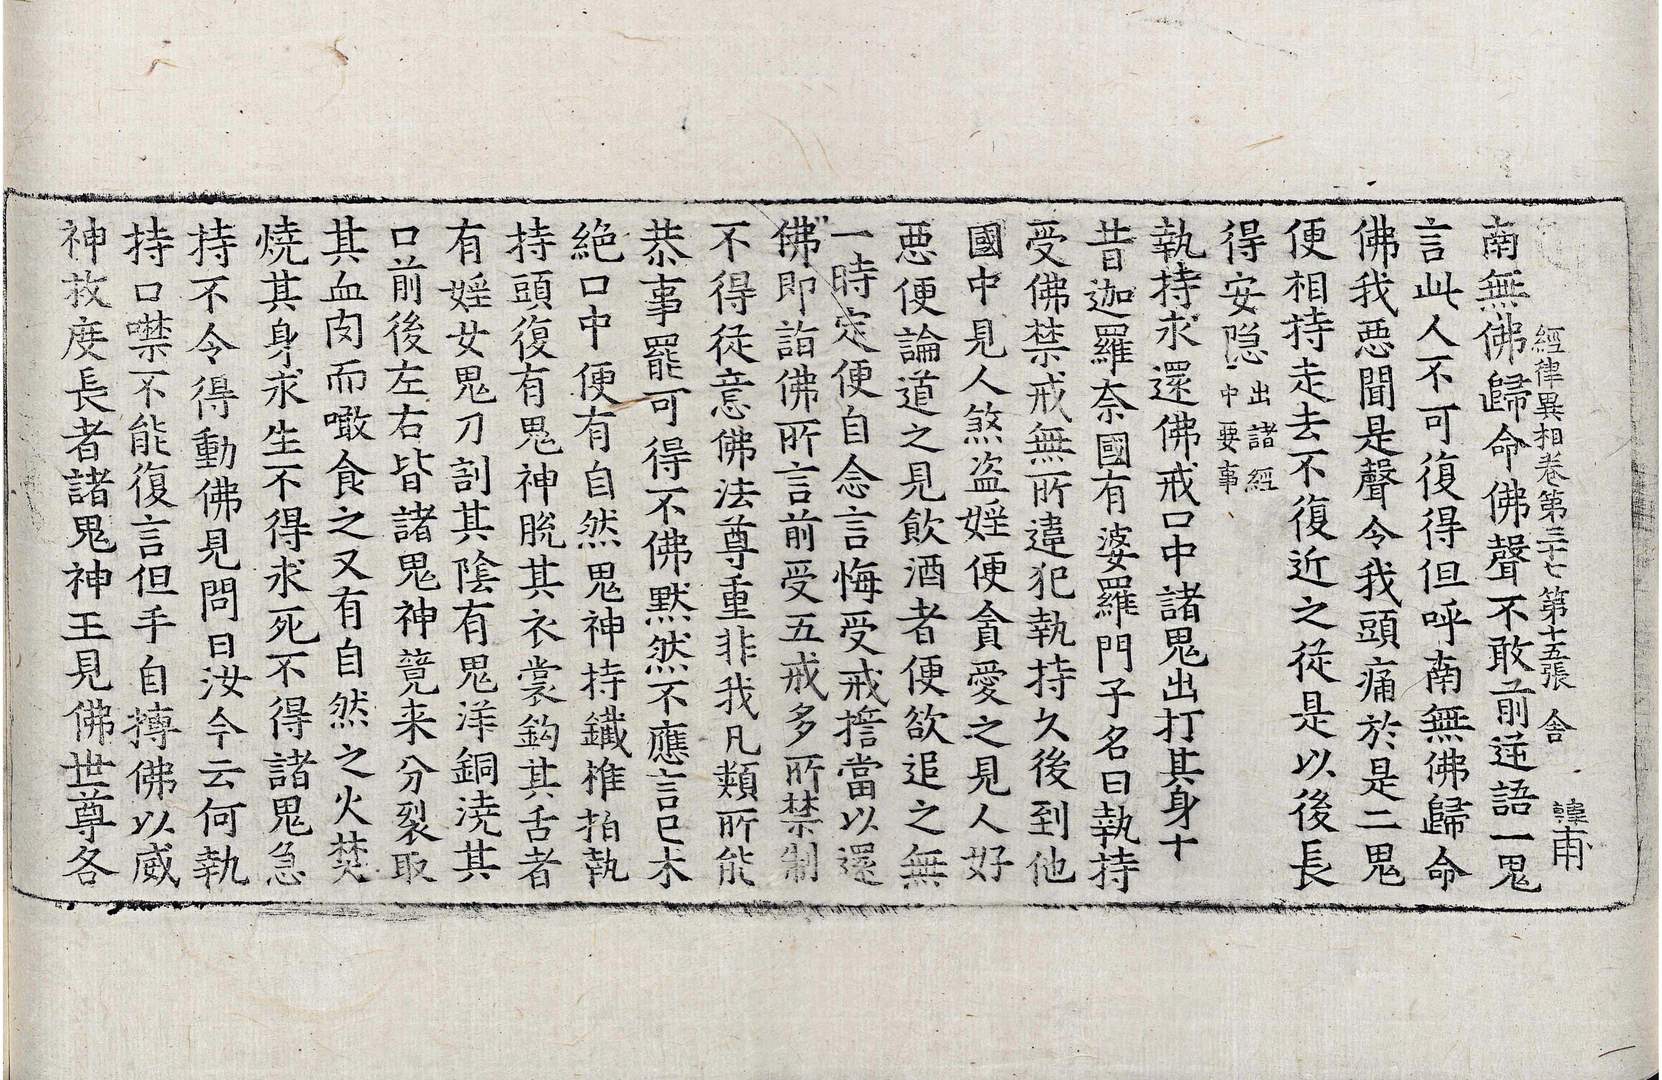 經律異相卷第三十七 第十五張 舍 韓甫
南無佛歸命佛聲不敢前逆語一鬼
言此人不可復得但呼南無佛歸命
佛我惡聞是聲令我頭痛於是二鬼
便相持走去不復近之從是以後長
得安隐 出諸經中要事
執持求還佛戒口中諸鬼出打其身十
昔迦羅奈國有婆羅門子名曰執持
受佛禁戒無所違犯執持久後到他
國中見人煞盜婬便貪愛之見人好
惡便論道之見飲酒者便欲追之無
一時定便自念言悔受戒擔當以還
佛即詣佛所言前受五戒多所禁制
不得從意佛法尊重非我凡類所能
恭事罷可得不佛默然不應言已未
絕口中便有自然鬼神持鐵椎拍執
持頭復有鬼神脫其衣裳鈎其舌者
有婬女鬼刀割其陰有鬼洋銅澆其
口前後左右皆諸鬼神競来分裂取
其血肉而噉食之又有自然之火焚
燒其身求生不得求死不得諸鬼急
持不令得動佛見問曰汝今云何執
持口噤不能復言但手自搏佛以威
神救度長者諸鬼神王見佛世尊各